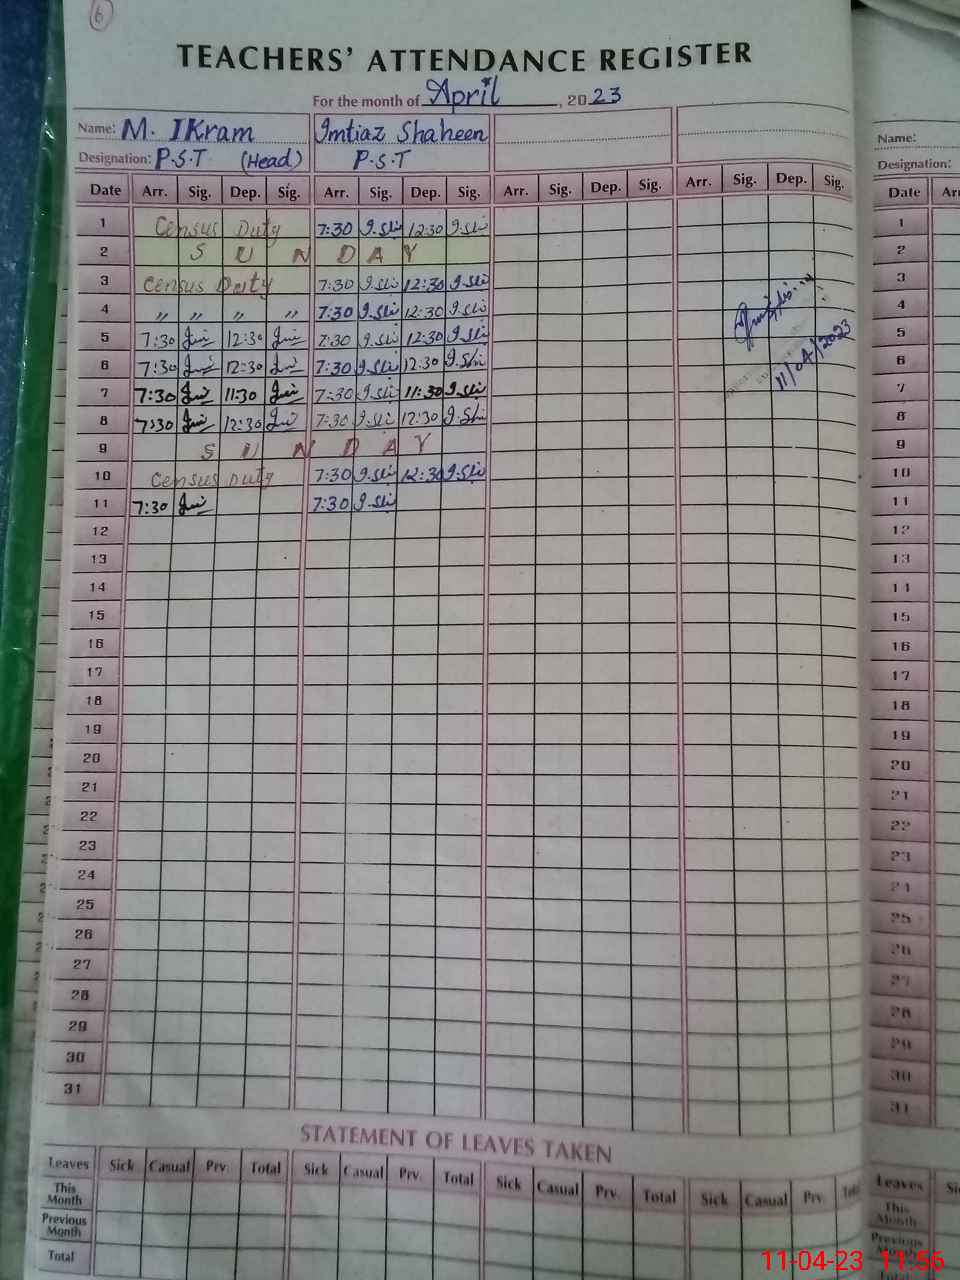 6
TEACHERS' ATTENDANCE REGISTER
For the month of April, 2023
Name: M. IKram Imtiaz Shaheen
Designation: P.S.T (Head) P.S.T
Date Arr. Sig. Dep. Sig. Arr. Sig. Dep. Sig. Arr. Sig. Dep. Sig. Arr. Sig. Dep. Sig.
1 Census Duty 7:30 I.Sh 12:30 I.Sh
2 S U N D A Y
3 Census Duty 7:30 I.Sh 12:30 I.Sh
4 " " " " 7:30 I.Sh 12:30 I.Sh
5 7:30 12:30 7:30 I.Sh 12:30 I.Sh
6 7:30 12:30 7:30 I.Sh 12:30 I.Sh
7 7:30 11:30 7:30 I.Sh 11:30 I.Sh
8 7:30 12:30 7:30 I.Sh 12:30 I.Sh
9 S U N D A Y
10 Census Duty 7:30 I.Sh 12:30 I.Sh
11 7:30 7:30 I.Sh
11/04/2023
12
13
14
15
16
17
18
19
20
21
22
23
24
25
26
27
28
29
30
31
STATEMENT OF LEAVES TAKEN
Leaves Sick Casual Prv. Total Sick Casual Prv. Total Sick Casual Prv. Total Sick Casual Prv. Total
This Month
Previous Month
Total
Name:
Designation:
Date Arr
1
2
3
4
5
6
7
8
9
10
11
12
13
14
15
16
17
18
19
20
21
22
23
24
25
26
27
28
29
30
31
Leaves
This Month
Previous Month
11-04-23 11:56